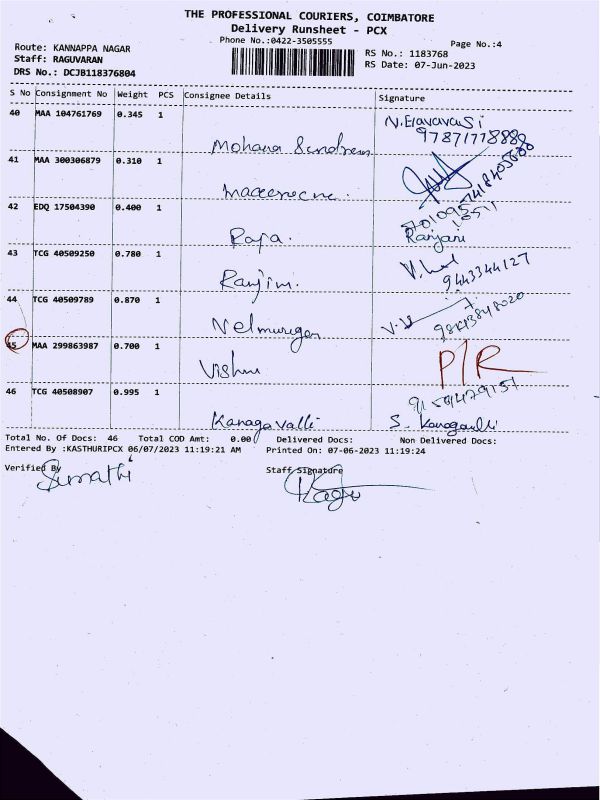 THE PROFESSIONAL COURIERS, COIMBATORE
Delivery Runsheet - PCX
Phone No.:0422-3505555
Page No.:4
Route: KANNAPPA NAGAR
Staff: RAGUVARAN
DRS No.: DCJB118376804
RS No.: 1183768
RS Date: 07-Jun-2023
S No Consignment No Weight PCS Consignee Details Signature
40 MAA 104761769 0.345 1
Mohana
97871778888
41 MAA 300306879 0.310 1
42 EDQ 17504390 0.400 1
Raja. Ranjani
43 TCG 40509250 0.780 1
Ranjim. 9443344127
44 TCG 40509789 0.870 1
Velmurugan V.V
45 MAA 299863987 0.700 1
Vishnu P/R
46 TCG 40508907 0.995 1
Kanagavalli S.
Total No. Of Docs: 46 Total COD Amt: 0.00 Delivered Docs: Non Delivered Docs:
Entered By :KASTHURIPCX 06/07/2023 11:19:21 AM Printed On: 07-06-2023 11:19:24
Verified By Staff Signature
Sumathi Ragu